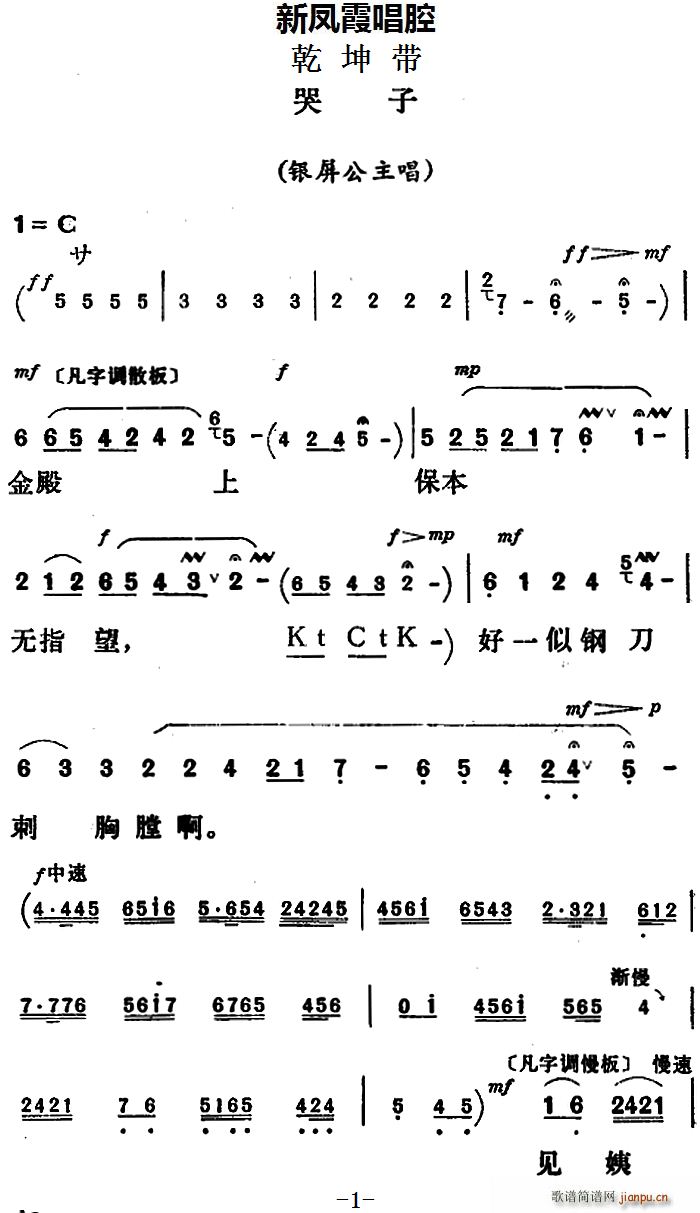 新凤霞唱腔
乾坤带
哭子
(银屏公主唱)
1=C
サ
ff ff mf
( 5 5 5 5 | 3 3 3 3 | 2 2 2 2 | 2 7 - 6 - 5 - ) |
mf 〔凡字调散板〕 f mp
6 6 5 4 2 4 2 6 5 - ( 4 2 4 5 - ) | 5 2 5 2 1 7 6 1 - |
金殿 上 保本
f f > mp mf
2 1 2 6 5 4 3 2 - ( 6 5 4 3 2 - ) | 6 1 2 4 5 4 - |
无指 望, K t C t K - ) 好一似钢刀
mf p
6 3 3 2 2 4 2 1 7 - 6 5 4 2 4 5 -
刺 胸膛啊。
f中速
( 4·445 6516 5·654 24245 | 4561 6543 2·321 612 |
渐慢
7·776 5617 6765 456 | 0 1 4561 565 4
〔凡字调慢板〕 慢速
mf
2421 7 6 5165 424 | 5 4 5 ) 1 6 2421 |
见 姨
-1-
歌谱简谱网 jianpu.cn